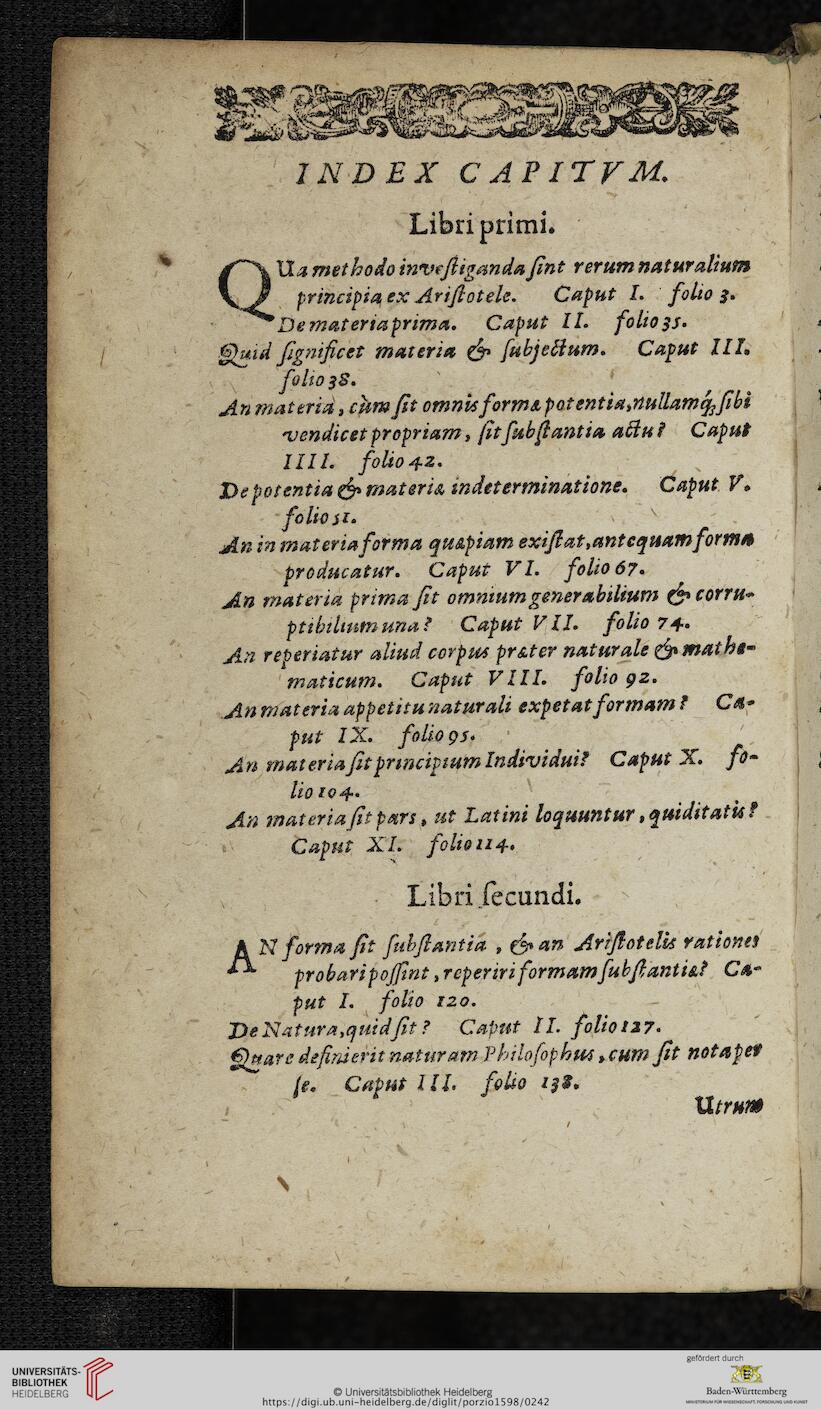 INDEX CAPITVM.
Libri primi.
QUa methodo inveſtiganda ſint rerum naturalium
principia, ex Ariſtotele. Caput I. folio 3.
De materia prima. Caput II. folio 35.
Quid ſignificet materia & ſubjectum. Caput III.
folio 38.
An materia, cùm ſit omnis formæ potentia, nullamq́; ſibi
vendicet propriam, ſit ſubſtantia actu? Caput
IIII. folio 42.
De potentia & materiæ indeterminatione. Caput V.
folio 51.
An in materia forma quæpiam exiſtat, antequam forma
producatur. Caput VI. folio 67.
An materia prima ſit omnium generabilium & corru-
ptibilium una? Caput VII. folio 74.
An reperiatur aliud corpus præter naturale & mathe-
maticum. Caput VIII. folio 92.
An materia appetitu naturali expetat formam? Ca-
put IX. folio 95.
An materia ſit principium Individui? Caput X. fo-
lio 104.
An materia ſit pars, ut Latini loquuntur, quiditatis?
Caput XI. folio 114.
Libri ſecundi.
AN forma ſit ſubſtantia, & an Ariſtotelis rationes
probari poſſint, reperiri formam ſubſtantiæ? Ca-
put I. folio 120.
De Natura, quid ſit? Caput II. folio 127.
Quare definierit naturam Philoſophus, cum ſit nota per
ſe. Caput III. folio 138.
Utrum
UNIVERSITÄTS-
BIBLIOTHEK
HEIDELBERG
© Universitätsbibliothek Heidelberg
https://digi.ub.uni-heidelberg.de/diglit/porzio1598/0242
gefördert durch
Baden-Württemberg
MINISTERIUM FÜR WISSENSCHAFT, FORSCHUNG UND KUNST